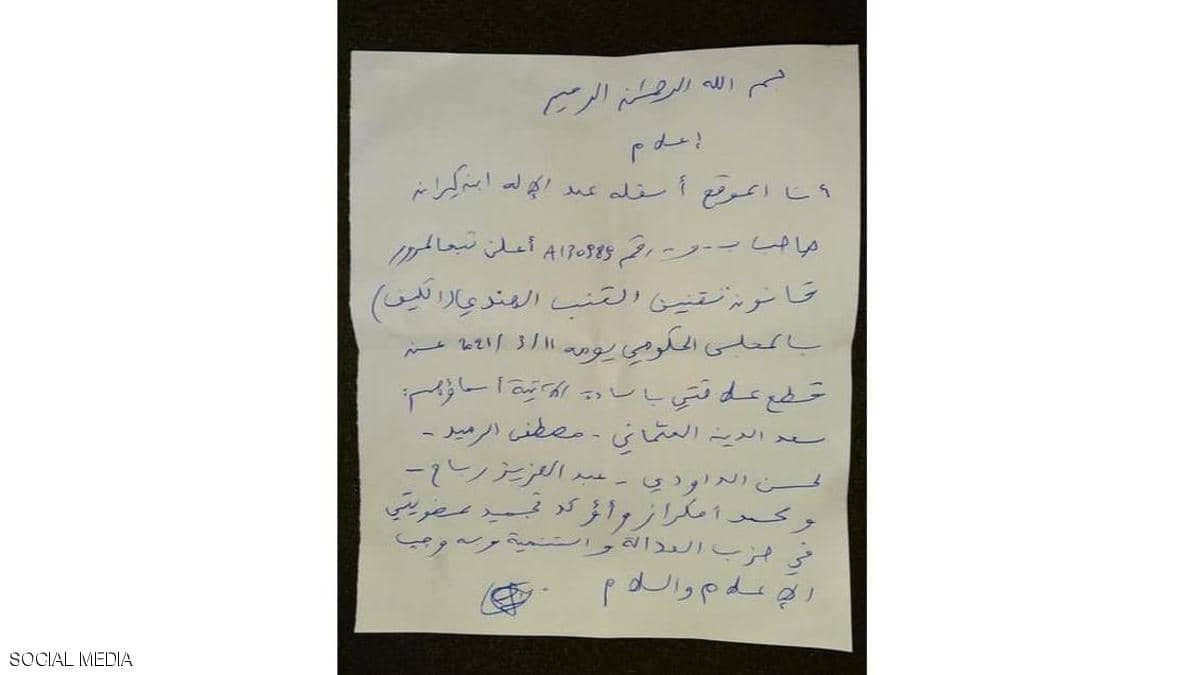 بسم الله الرحمن الرحيم
إعلام
أنا الموقع أسفله عبد الإله ابن كيران
صاحب ب.و. رقم A130989 أعلن تبعا لمرور
قانون تقنين القنب الهندي (الكيف)
بالمجلس الحكومي يومه 11/3/2021 عن
قطع علاقتي بالسادة الآتية أسماؤهم:
سعد الدين العثماني - مصطفى الرميد -
لحسن الداودي - عبد العزيز رباح -
و محمد أمكراز وأؤكد تجميد عضويتي
في حزب العدالة والتنمية ومنه وجب
الإعلام والسلام
SOCIAL MEDIA